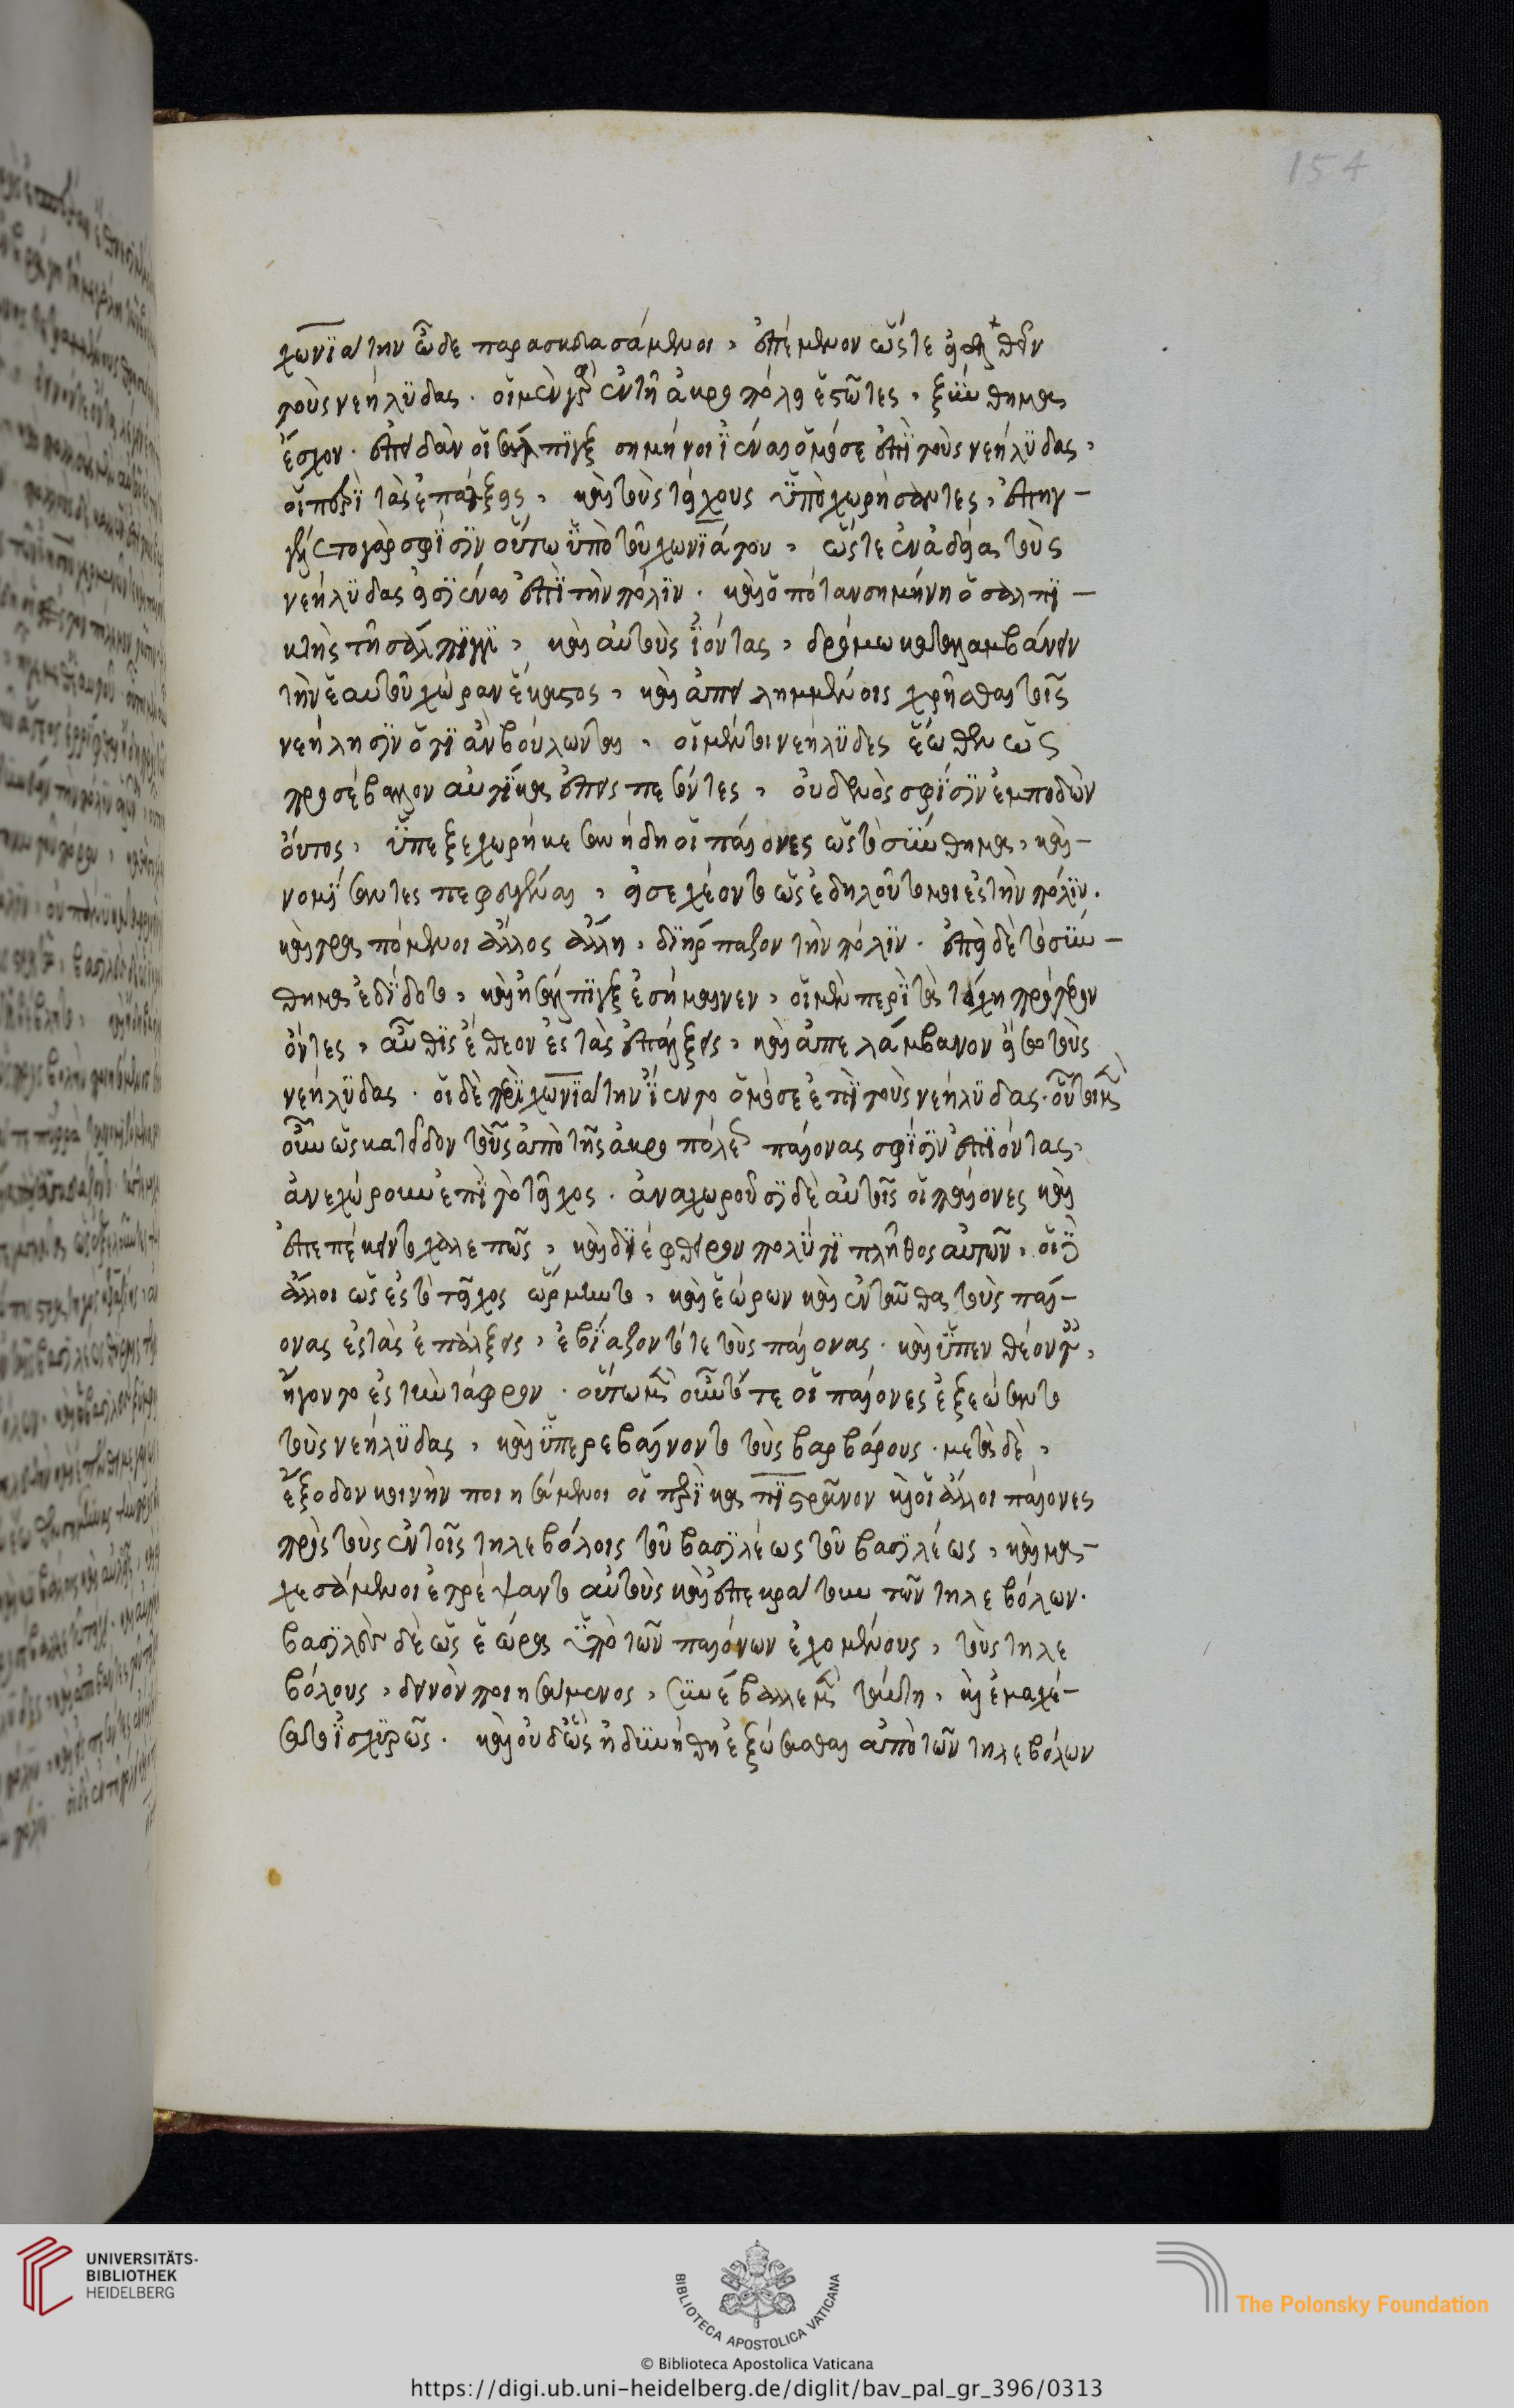 154
χωνιάτην ὧδε παρασκευασάμενοι, ἐπέμενον ὥστε εἰσελθεῖν
τοὺς νεήλυδας. οἱ μὲν γὰρ ἐν τῇ ἀκροπόλει ἑστῶτες, ξύνθημα
ἔσχον. ἐπειδὰν οἱ σάλπιγξ σημήνοι ἰέναι ὁμόσε ἐπὶ τοὺς νεήλυδας,
οἱ περὶ τὰς ἐπάλξεις, καὶ τοὺς τείχους ὑποχωρήσαντες, ἐπηγ-
γέλλετο γὰρ σφίσιν οὕτω ὑπὸ τοῦ χωνιάτου, ὥστε ἐν ἀδείᾳ τοὺς
νεήλυδας εἰσιέναι ἐπὶ τὴν πόλιν. καὶ ὁπόταν σημήνῃ ὁ σαλπι-
κτὴς τῇ σάλπιγγι, καὶ αὐτοὺς ἰόντας, δρόμω καταλαμβάνειν
τὴν ἑαυτοῦ χώραν ἕκαστος, καὶ ἀπειλημμένοις χρῆσθαι τοῖς
νεήλησιν ὅτι ἂν βούλωνται. οἱ μέντοι νεήλυδες ἕωθεν ὡς
προσέβαλλον αὐτίκα ἐπεισπεσόντες, οὐδενὸς σφίσιν ἐμποδὼν
ὄντος, ὑπεξεχωρήκεσαν ἤδη οἱ παίονες ὡς τὸ σύνθημα, καὶ
νομίσαντες πεφευγέναι, εἰσεχέοντο ὡς ἐδηλοῦτό μοι ἐς τὴν πόλιν.
καὶ τραπόμενοι ἄλλος ἄλλη, διήρπαζον τὴν πόλιν. ἐπεὶ δὲ τὸ σύν-
θημα ἐδίδοτο, καὶ ἡ σάλπιγξ ἐσήμαινεν, οἱ μὲν περὶ τὰ τείχη πρότερον
ὄντες, αὖθις ἔθεον ἐς τὰς ἐπάλξεις, καὶ ἀπελάμβανον εἴσω τοὺς
νεήλυδας. οἱ δὲ περὶ χωνιάτην ἵεντο ὁμόσε ἐπὶ τοὺς νεήλυδας. οὗτοι μὲν
οὖν ὡς κατεῖδον τοὺς ἀπὸ τῆς ἀκροπόλεως παίονας σφίσιν ἐπιόντας,
ἀνεχώρουν ἐπὶ τὸ τεῖχος. ἀναχωροῦσι δὲ αὐτοῖς οἱ παίονες καὶ
ἐπεπέκειντο χαλεπῶς, καὶ διέφθειρον πολύ τι πλῆθος αὐτῶν. οἱ δὲ
ἄλλοι ὡς ἐς τὸ τεῖχος ὥρμηντο, καὶ ἑώρων καὶ ἐνταῦθα τοὺς παί-
ονας ἐς τὰς ἐπάλξεις, ἐβιάζοντό τε τοὺς παίονας. καὶ ὑπενθέοντες,
ἥγοντο ἐς τὴν τάφρον. οὕτω μὲν οὖν τότε οἱ παίονες ἐξεώσαντο
τοὺς νεήλυδας, καὶ ὑπερεβαίνοντο τοὺς βαρβάρους. μετὰ δὲ,
ἔξοδον κοινὴν ποιησάμενοι οἱ περὶ καπιστράνον καὶ οἱ ἄλλοι παίονες
πρὸς τοὺς ἐν τοῖς τηλεβόλοις τοῦ βασιλέως τοῦ βασιλέως, καὶ μα-
χεσάμενοι ἐτρέψαντο αὐτοὺς καὶ ἐπεκράτουν τῶν τηλεβόλων.
βασιλεὺς δὲ ὡς ἑώρα ὑπὸ τῶν παιόνων ἐχομένους, τοὺς τηλε
βόλους, δεινὸν ποιησάμενος, ξυνέβαλλε μὲν ταύτη, καὶ ἐμαχέ-
σατο ἰσχυρῶς. καὶ οὐδ' ὣς ἠδυνήθη ἐξώσασθαι ἀπὸ τῶν τηλεβόλων
UNIVERSITÄTS-
BIBLIOTHEK
HEIDELBERG
BIBLIOTECA APOSTOLICA VATICANA
The Polonsky Foundation
© Biblioteca Apostolica Vaticana
https://digi.ub.uni-heidelberg.de/diglit/bav_pal_gr_396/0313